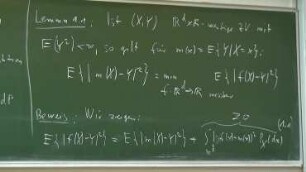 Lemma 1.1: Ist (X,Y) ℝ^d×ℝ-wertige ZV mit
E{Y²}<∞, so gilt für m(x)=E{Y|X=x}:
E{|m(X)-Y|²} = min E{|f(X)-Y|²}
f:ℝ^d→ℝ messbar
Beweis: Wir zeigen: ≥0
E{|f(X)-Y|²} = E{|m(X)-Y|²} + ∫|f(x)-m(x)|² P_X(dx)
dP